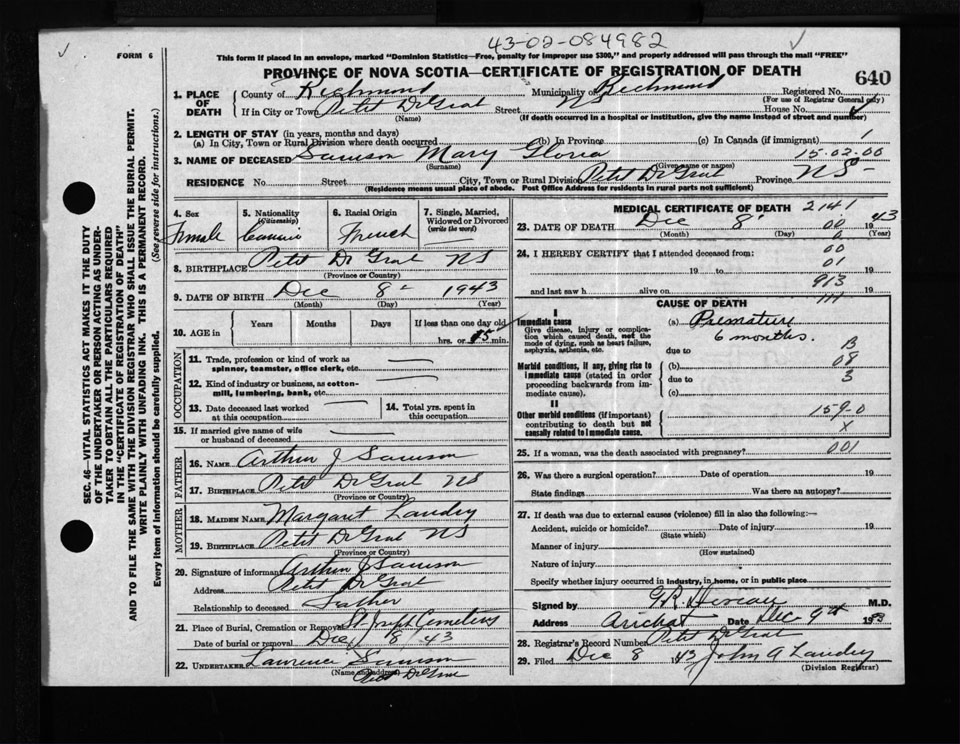 43-02-084982
FORM 6
This form if placed in an envelope, marked "Dominion Statistics—Free, penalty for improper use $300," and properly addressed will pass through the mail "FREE"
PROVINCE OF NOVA SCOTIA—CERTIFICATE OF REGISTRATION OF DEATH
640
1. PLACE OF DEATH
County of Richmond Municipality of Richmond Registered No.
(For use of Registrar General only)
If in City or Town Petit DeGrat Street NS House No.
(Name) (If death occurred in a hospital or institution, give the name instead of street and number)
2. LENGTH OF STAY (in years, months and days)
(a) In City, Town or Rural Division where death occurred (b) In Province (c) In Canada (if immigrant) 1
3. NAME OF DECEASED Samson Mary Gloria 15-02-00
(Surname) (Given name or names)
RESIDENCE No. Street City, Town or Rural Division Petit DeGrat Province NS
(Residence means usual place of abode. Post Office Address for residents in rural parts not sufficient)
SEC. 46—VITAL STATISTICS ACT MAKES IT THE DUTY
OF THE UNDERTAKER OR PERSON ACTING AS UNDER-
TAKER TO OBTAIN ALL THE PARTICULARS REQUIRED
IN THE "CERTIFICATE OF REGISTRATION OF DEATH"
AND TO FILE THE SAME WITH THE DIVISION REGISTRAR WHO SHALL ISSUE THE BURIAL PERMIT.
WRITE PLAINLY WITH UNFADING INK. THIS IS A PERMANENT RECORD.
Every item of information should be carefully supplied. (See reverse side for instructions.)
4. Sex
Female
5. Nationality
(Citizenship)
6. Racial Origin
French
7. Single, Married, Widowed or Divorced
(write the word)
8. BIRTHPLACE Petit DeGrat NS
(Province or Country)
9. DATE OF BIRTH Dec 8 1943
(Month) (Day) (Year)
10. AGE in Years Months Days If less than one day old
hrs. or 15 min.
OCCUPATION
11. Trade, profession or kind of work as
spinner, teamster, office clerk, etc.
12. Kind of industry or business, as cotton-
mill, lumbering, bank, etc.
13. Date deceased last worked
at this occupation
14. Total yrs. spent in
this occupation
15. If married give name of wife
or husband of deceased
FATHER
16. NAME Arthur J Samson
17. BIRTHPLACE Petit DeGrat NS
(Province or Country)
MOTHER
18. MAIDEN NAME Margaret Landry
19. BIRTHPLACE Petit DeGrat NS
(Province or Country)
20. Signature of informant Arthur J Samson
Address Petit DeGrat
Relationship to deceased Father
21. Place of Burial, Cremation or Removal St Joseph Cemetery
Date of burial or removal Dec 8 43
22. UNDERTAKER Lawrence Samson
(Name and address) Petit DeGrat
MEDICAL CERTIFICATE OF DEATH 2141
23. DATE OF DEATH Dec 8 00 1943
(Month) (Day) (Year)
24. I HEREBY CERTIFY that I attended deceased from: 00
19 to 01 19
and last saw h alive on 913 19
CAUSE OF DEATH 111
I
Immediate cause
Give disease, injury or complica-
tion which caused death, not the
mode of dying, such as heart failure,
asphyxia, asthenia, etc.
(a) Premature
6 months.
due to B
Morbid conditions, if any, giving rise to
immediate cause (stated in order
proceeding backwards from im-
mediate cause).
(b) 08
due to 3
(c)
II
Other morbid conditions (if important)
contributing to death but not
causally related to immediate cause.
159-0
X
25. If a woman, was the death associated with pregnancy? 001
26. Was there a surgical operation? Date of operation 19
State findings Was there an autopsy?
27. If death was due to external causes (violence) fill in also the following:—
Accident, suicide or homicide? Date of injury 19
(State which)
Manner of injury
(How sustained)
Nature of injury
Specify whether injury occurred in industry, in home, or in public place
Signed by M.D.
Address Arichat Date Dec 9th 1943
28. Registrar's Record Number Petit DeGrat
29. Filed Dec 8 1943 John A Landry
(Division Registrar)